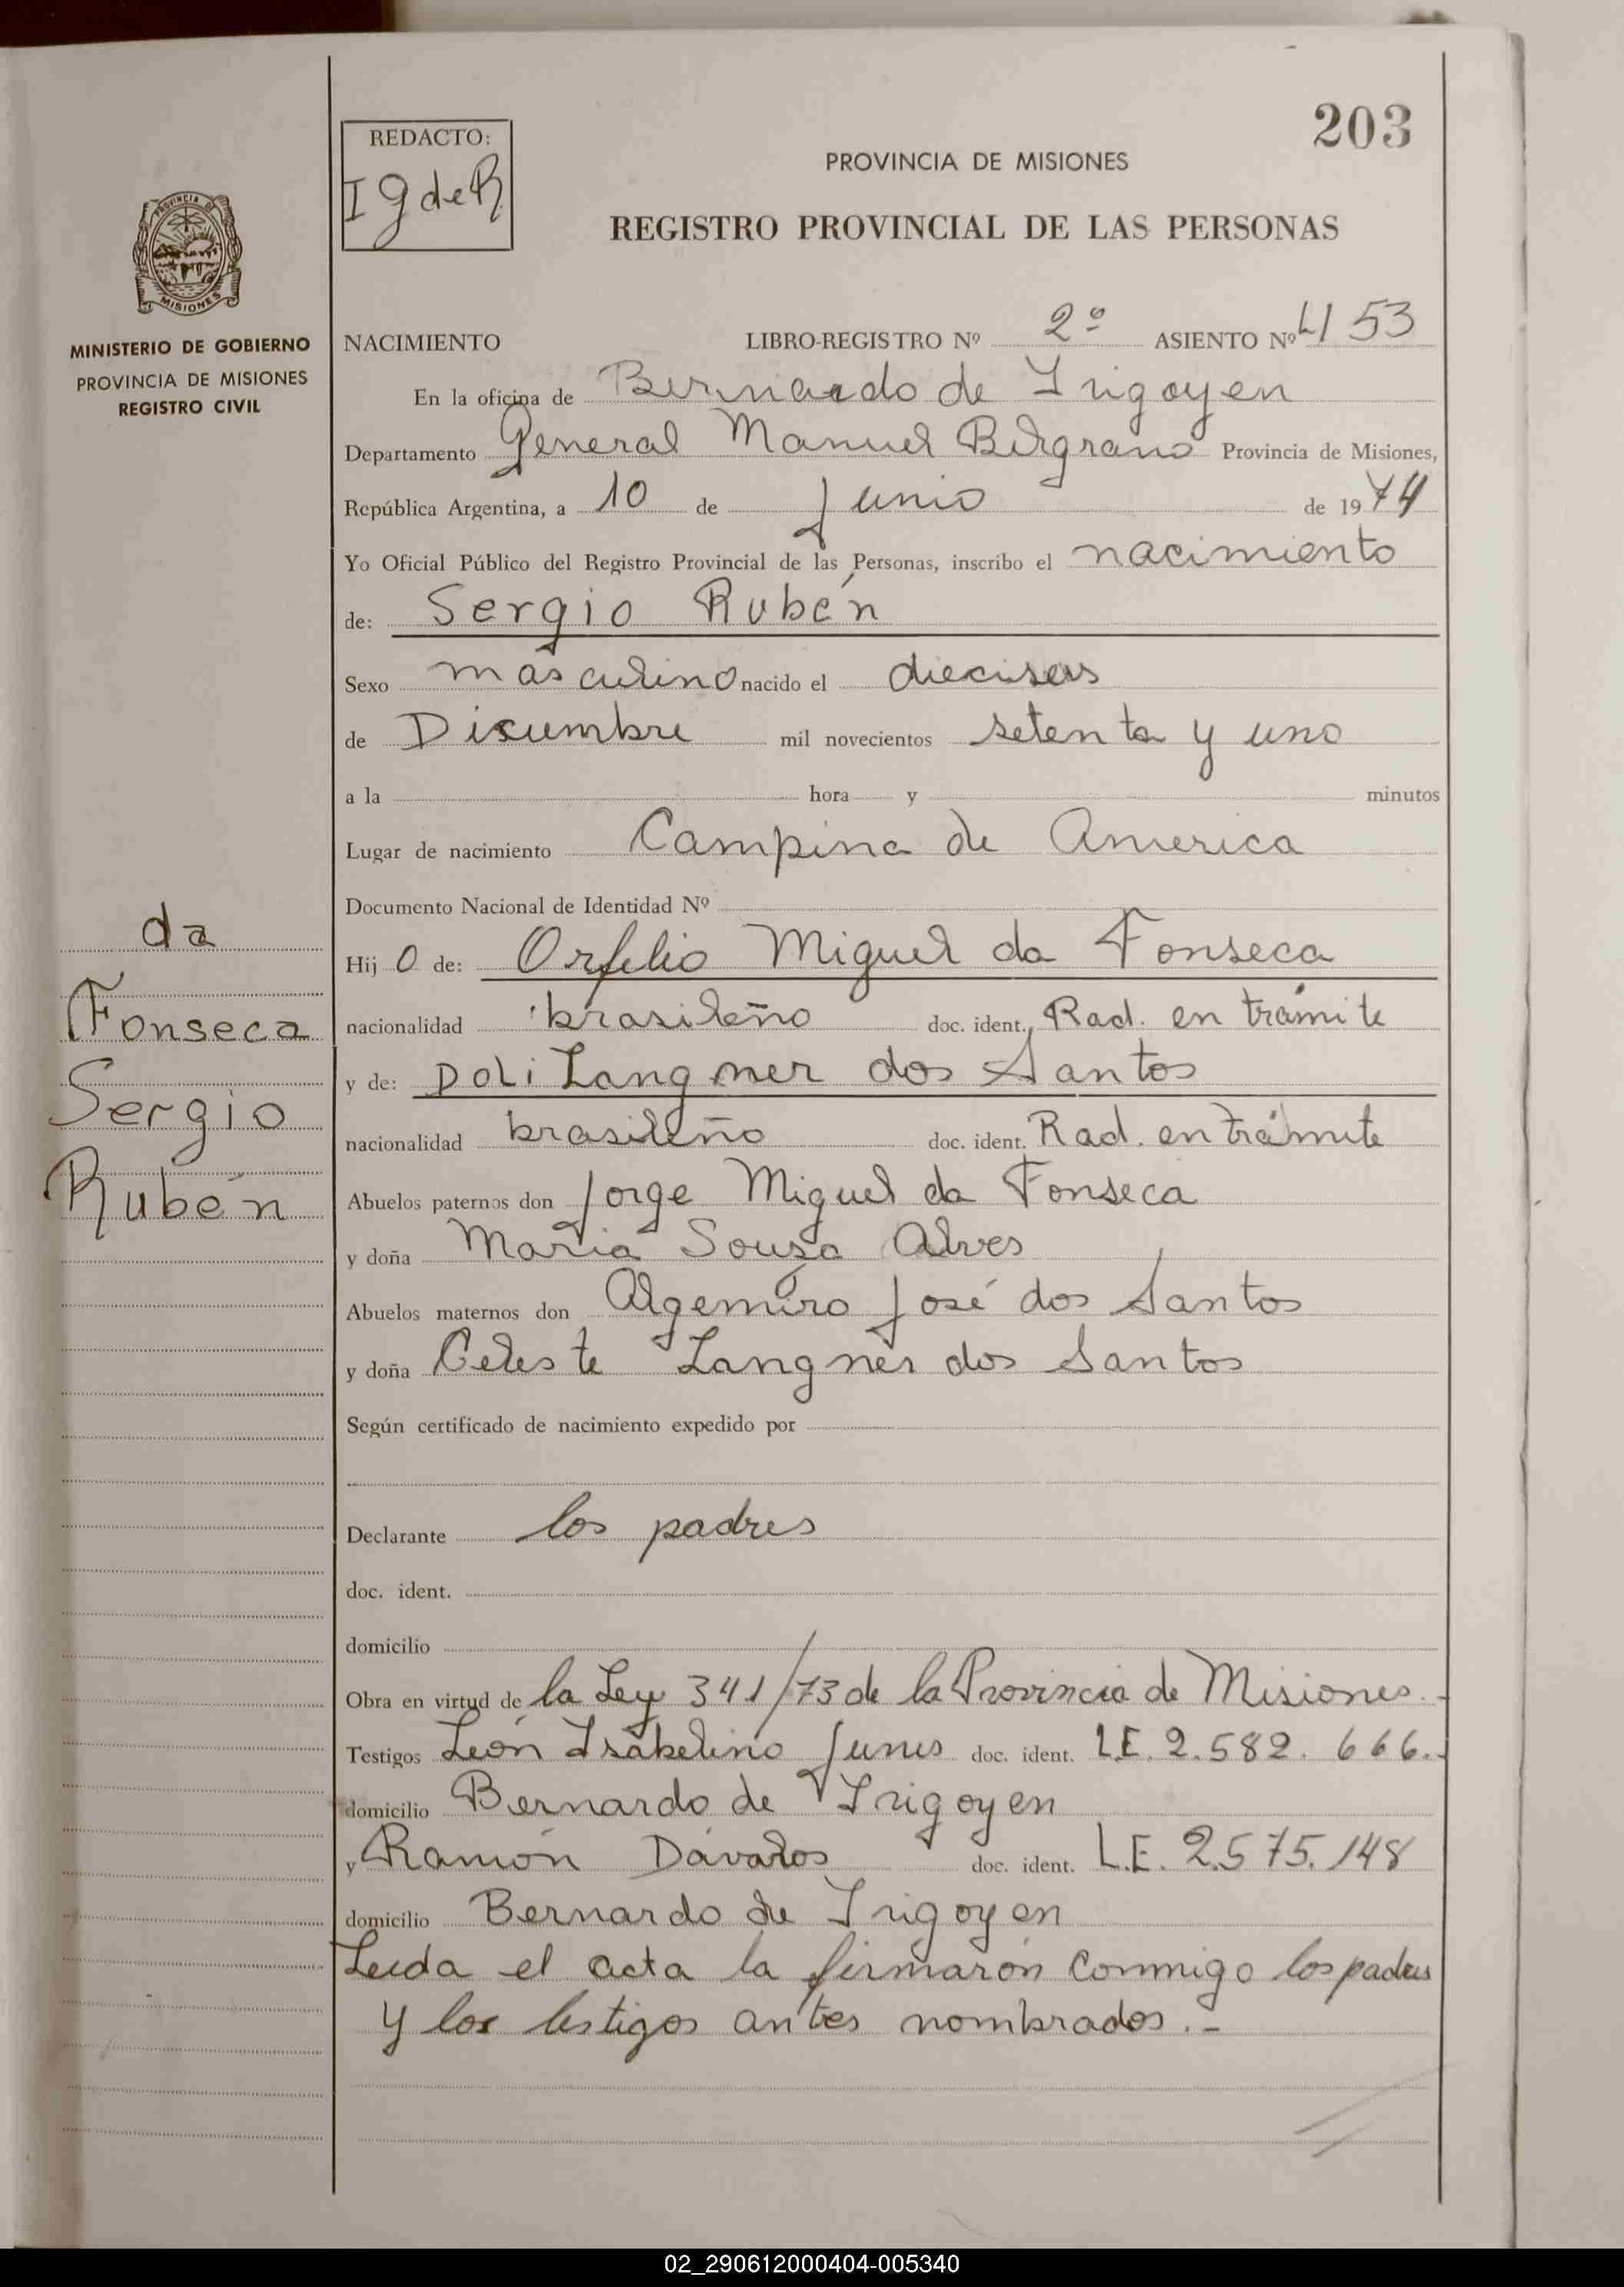 203
REDACTO:
I g de R.
PROVINCIA DE MISIONES
REGISTRO PROVINCIAL DE LAS PERSONAS
PROVINCIA DE
MISIONES
MINISTERIO DE GOBIERNO
PROVINCIA DE MISIONES
REGISTRO CIVIL
NACIMIENTO LIBRO-REGISTRO Nº 2º ASIENTO Nº 453
En la oficina de Bernardo de Irigoyen
Departamento General Manuel Belgrano Provincia de Misiones,
República Argentina, a 10 de Junio de 1974
Yo Oficial Público del Registro Provincial de las Personas, inscribo el nacimiento
de: Sergio Rubén
Sexo masculino nacido el dieciseis
de Diciembre mil novecientos setenta y uno
a la hora y minutos
Lugar de nacimiento Campina de America
Documento Nacional de Identidad Nº
Hij o de: Orfelio Miguel da Fonseca
nacionalidad brasileño doc. ident. Rad. en trámite
y de: Doli Langner dos Santos
nacionalidad brasileño doc. ident. Rad. en trámite
Abuelos paternos don Jorge Miguel da Fonseca
y doña Maria Sousa Alves
Abuelos maternos don Algemiro José dos Santos
y doña Celeste Langner dos Santos
Según certificado de nacimiento expedido por
Declarante los padres
doc. ident.
domicilio
Obra en virtud de la Ley 341/73 de la Provincia de Misiones.-
Testigos León Isabelino Junes doc. ident. L.E. 2.582.666.-
domicilio Bernardo de Irigoyen
y Ramón Dávalos doc. ident. L.E. 2.575.148
domicilio Bernardo de Irigoyen
Leida el acta la firmarón conmigo los padres
y los testigos antes nombrados.-
da
Fonseca
Sergio
Rubén
02_290612000404-005340